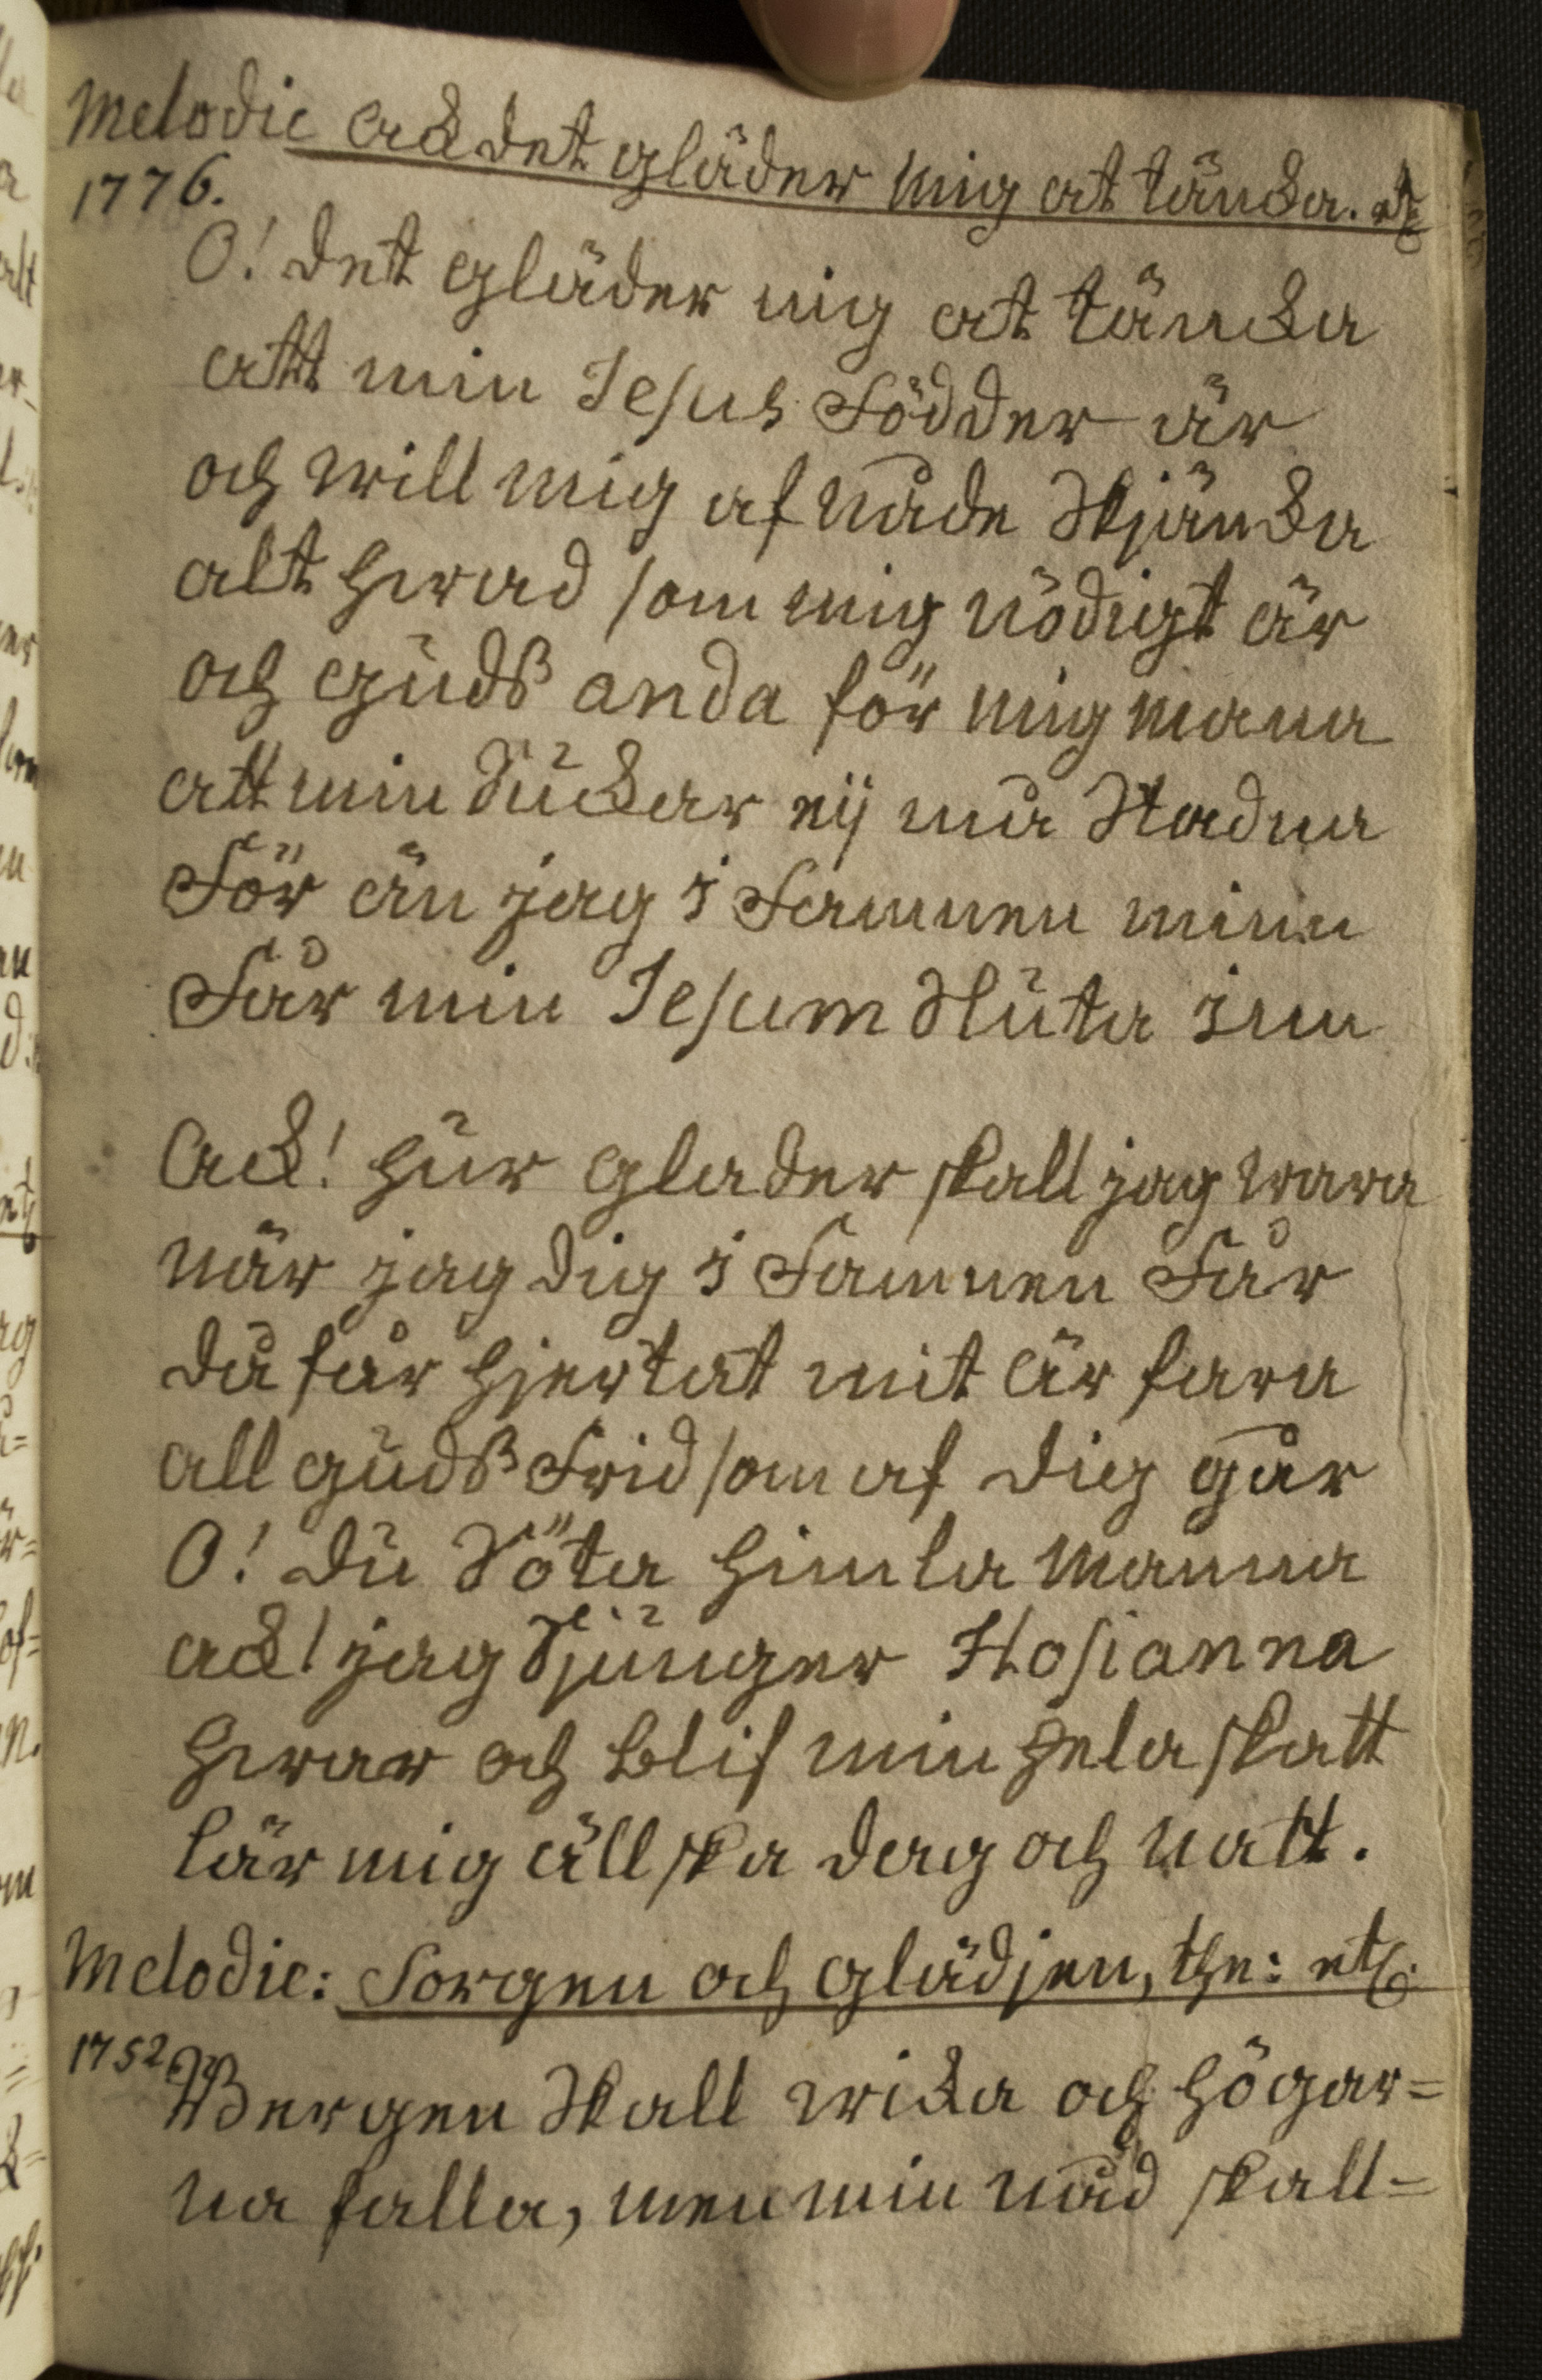 Melodie Ack det gläder mig at täncka. etc
1776.
O! det gläder mig at täncka
att min Jesus Födder är
och will mig af nåde Skjäncka
alt hwad som mig nödigt är
och Guds anda för mig mana
att min Suckar eij må Stadna
För än jag i Famnen minn
Får min Jesum Sluta inn
Ack! hur glader skall jag wara
när jag dig i Famnen Får
då får hjertat mit är fara
all Guds Frid som af dig går
O! du Söta himla Manna
ack! jag Sjunger Hosianna
hwar och blif min hela skatt
lär mig äll ska dag och natt.
Melodie: Sorgen och glädjen, the: etc.
1752
Bergen Skall wicka och högar=
na falla, men min nåd skall=